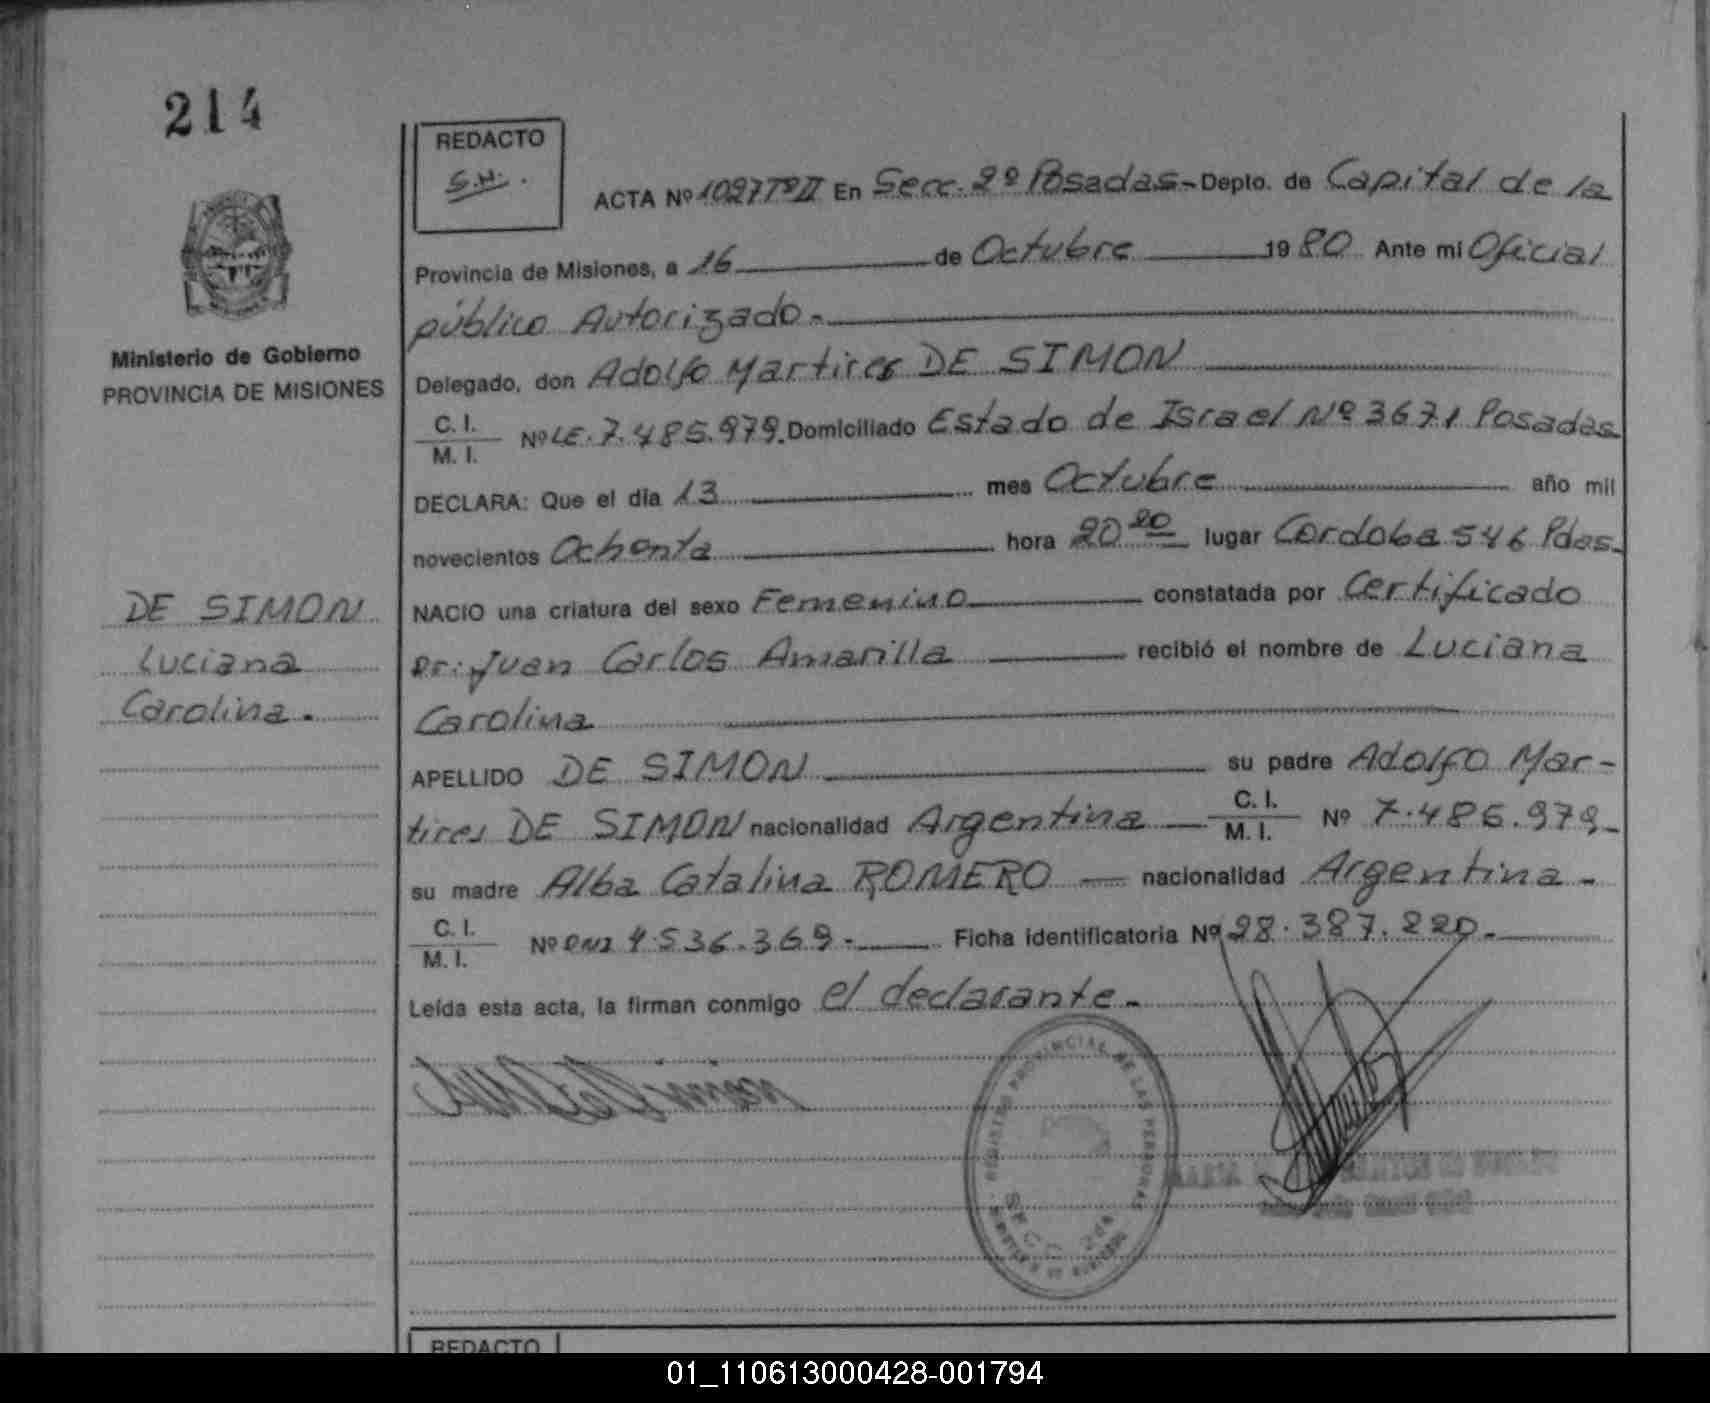 214
REDACTO
S.H.
ACTA Nº 1027 Tº II En Secc. 2º Posadas - Depto. de Capital de la
Provincia de Misiones, a 16 de Octubre 1980 Ante mi Oficial
público Autorizado.-
Delegado, don Adolfo Martires DE SIMON
C. I.
M. I. Nº LE. 7.485.979. Domiciliado Estado de Israel Nº 3671 Posadas
DECLARA: Que el día 13 mes Octubre año mil
novecientos Ochenta hora 20 20 lugar Cordoba 546 Pdas.
NACIO una criatura del sexo Femenino constatada por Certificado
Dr. Juan Carlos Amarilla recibió el nombre de Luciana
Carolina
APELLIDO DE SIMON su padre Adolfo Mar-
tires DE SIMON nacionalidad Argentina C. I.
M. I. Nº 7.485.979-
su madre Alba Catalina ROMERO nacionalidad Argentina -
C. I.
M. I. Nº DNI 4.536.369.- Ficha identificatoria Nº 28.387.220.-
Leída esta acta, la firman conmigo el declarante.-
Ministerio de Gobierno
PROVINCIA DE MISIONES
DE SIMON
Luciana
Carolina.
REGISTRO PROVINCIAL DE LAS PERSONAS
SECC. 2da
REDACTO
01_110613000428-001794